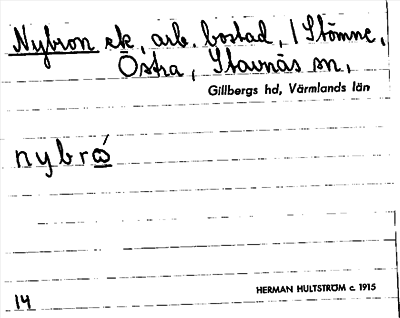 Nybron ek, arb. bostad, / Stömne,
Östra, Stavnäs sn,
Gillbergs hd, Värmlands län
nybrώ̲
HERMAN HULTSTRÖM c. 1915
14